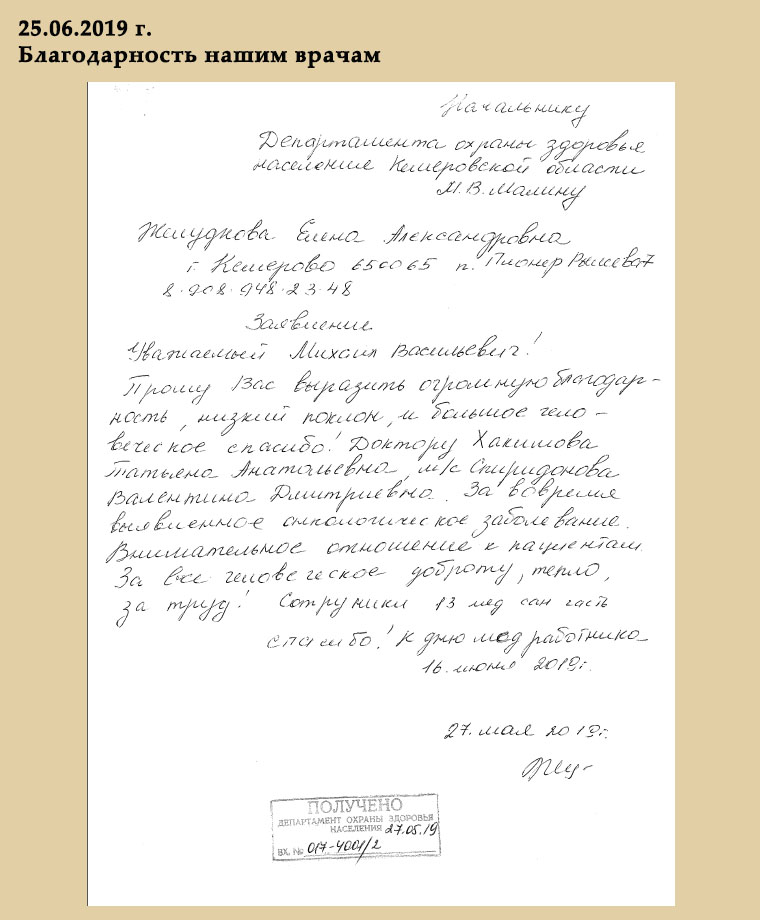 25.06.2019 г.
Благодарность нашим врачам
Начальнику
Департамента охраны здоровья
население Кемеровской области
М.В. Малину
Желуднова Елена Александровна
г. Кемерово 650065 п. Пионер
8-908-948-23-48
Заявление
Уважаемый Михаил Васильевич!
Прошу Вас выразить огромную благодар-
ность, низкий поклон, и большое чело-
веческое спасибо! Доктору Хакимова
Татьяна Анатольевна, м/с Спиридонова
Валентина Дмитриевна. За вовремя
выявленное онкологическое заболевание.
Внимательное отношение к пациентам.
За все человеческое доброту, тепло,
за труд! Сотруники 13 мед сан часть
спасибо! К дню мед работника
16 июня 2019г.
27. мая 2019г.
ПОЛУЧЕНО
ДЕПАРТАМЕНТ ОХРАНЫ ЗДОРОВЬЯ
НАСЕЛЕНИЯ 27.05.19
ВХ. № 017-4001/2